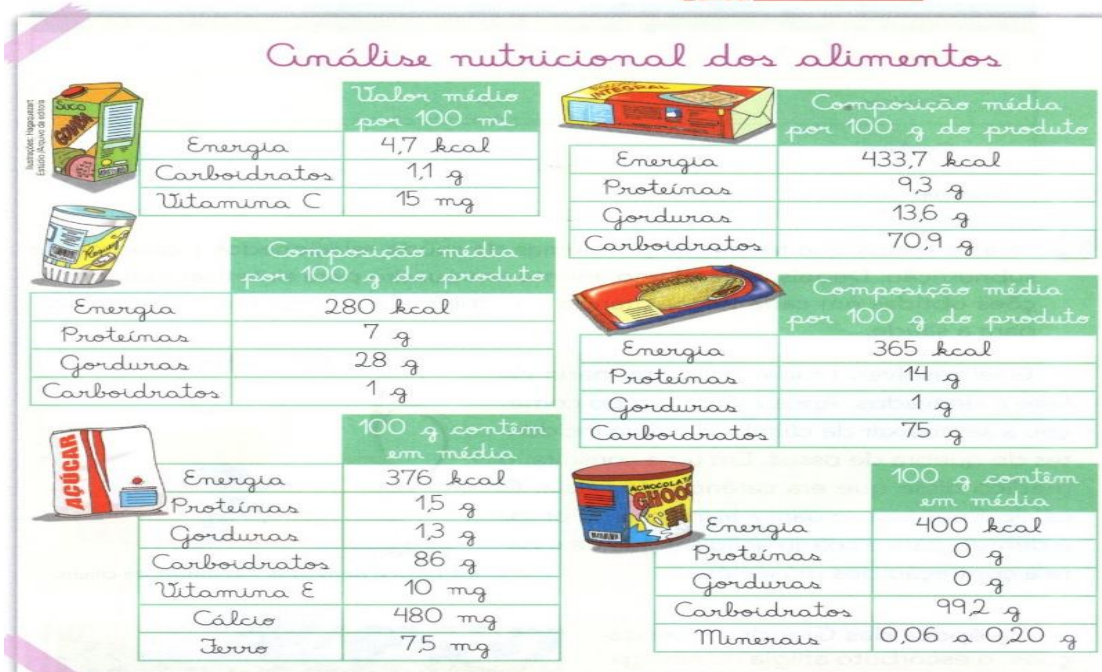 Análise nutricional dos alimentos
Ilustrações: Hagaquezart
Estúdio/Arquivo da editora
SUCO
GOIABA
Valor médio
por 100 mL
Energia 4,7 kcal
Carboidratos 1,1 g
Vitamina C 15 mg
Composição média
por 100 g do produto
Energia 280 kcal
Proteínas 7 g
Gorduras 28 g
Carboidratos 1 g
AÇÚCAR
100 g contêm
em média
Energia 376 kcal
Proteínas 1,5 g
Gorduras 1,3 g
Carboidratos 86 g
Vitamina E 10 mg
Cálcio 480 mg
Ferro 7,5 mg
INTEGRAL
Composição média
por 100 g do produto
Energia 433,7 kcal
Proteínas 9,3 g
Gorduras 13,6 g
Carboidratos 70,9 g
Composição média
por 100 g do produto
Energia 365 kcal
Proteínas 14 g
Gorduras 1 g
Carboidratos 75 g
ACHOCOLAT
CHOC
100 g contêm
em média
Energia 400 kcal
Proteínas 0 g
Gorduras 0 g
Carboidratos 99,2 g
Minerais 0,06 a 0,20 g